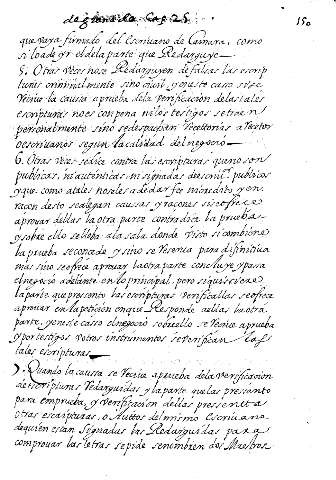 Cap. 25. 150
que vaya firmado del Escrivano de Camara, como
si loade yr el dela parte que Redarguye
5. Otras veces nose Redarguyen de falsas las escrip
turas criminalmente sino civil, y en este caso si se
Recive la causa a prueba dela verificación de las tales
escripturas noes con pena ni los testigos se traen
personalmente sino se despachan Receptorias a Rector
o escrivanos segun la calidad del negocio
6. Otras veces sedice contra las escripturas que no son
publicas, ni autenticas ni signadas de scnos. publicos
y que como atales noseles adedar fee ni credito y en
racon desto se alegan causas y racones si se ofrece
aprovar dellas la otra parte contradice la prueba
y sobre ello se lleba ala sala donde visto si combiene
la prueba se concede, y sino se Reserva para difinitiva
mas si no se ofrece aprovar la otra parte concluye y pasa
el negocio adelante en lo principal, pero si quisiere
la parte que presento las escripturas verificallas se ofrece
aprovar en la peticion en que Responde a ellas la otra
parte, y en este caso el negocio sobre ello se Recive aprueba
y por testigos y otros instrumentos se verifican las
tales escripturas
7. Quando la causa se Recive aprueba dela verificación
de escripturas Redarguidas y la parte que las presento
para em prueba, y verificacion dellas pressenta
otras escripturas, o Auttos del mismo Escrivano
de quien estan signadas las Redarguidas para
comprovar las letras se pide se nombren dos Maestros